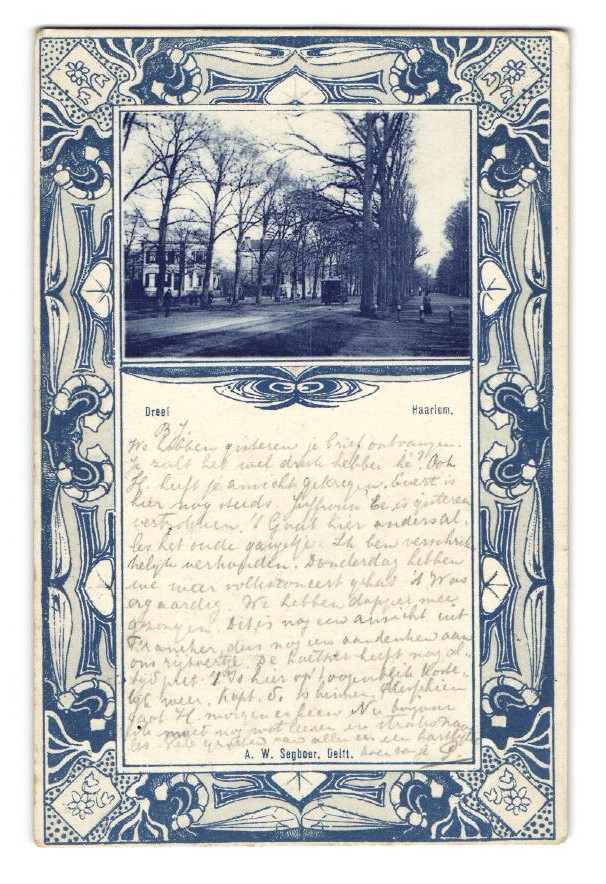 Dreef Haarlem.
B J.
We hebben gisteren je brief ontvangen.
Je zult het wel druk hebben hè? Ook
H. heeft je ansicht gekregen. Evert is
hier nog steeds. Juffrouw is gisteren
vertrokken. 't Gaat hier anders al-
les het oude gangetje. Ik ben verschrik-
kelijk verkouden. Donderdag hebben
we weer volksconcert gehad. 't Was
erg aardig. We hebben dapper mee
gezongen. Dit is nog een ansicht uit
dus nog een aandenken aan
ons rijtoertje. De heeft nog al-
tyd 't Is hier op 't oogenblik
weer. Kapt. S. is binnen. Misschien
gaat H. morgen er heen. Nu bonjour
ik moet nog wat leeren en straks naar
les. Vele groeten van allen en een hartelijke
A. W. Segboer, Delft.
zoen van je P.